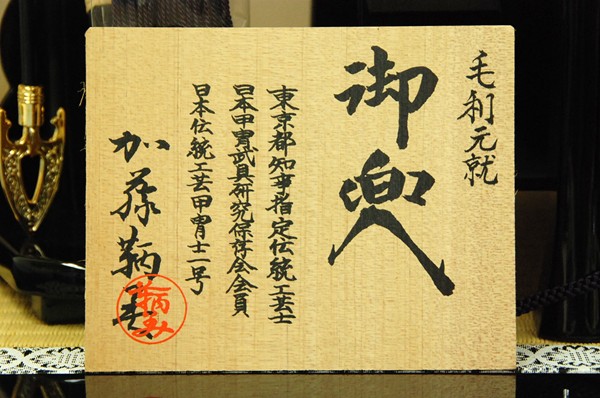 毛利元就
御兜
東京都知事指定伝統工芸士
日本甲冑武具研究保存会会員
日本伝統工芸甲冑士一号
加藤鞆美
鞆美